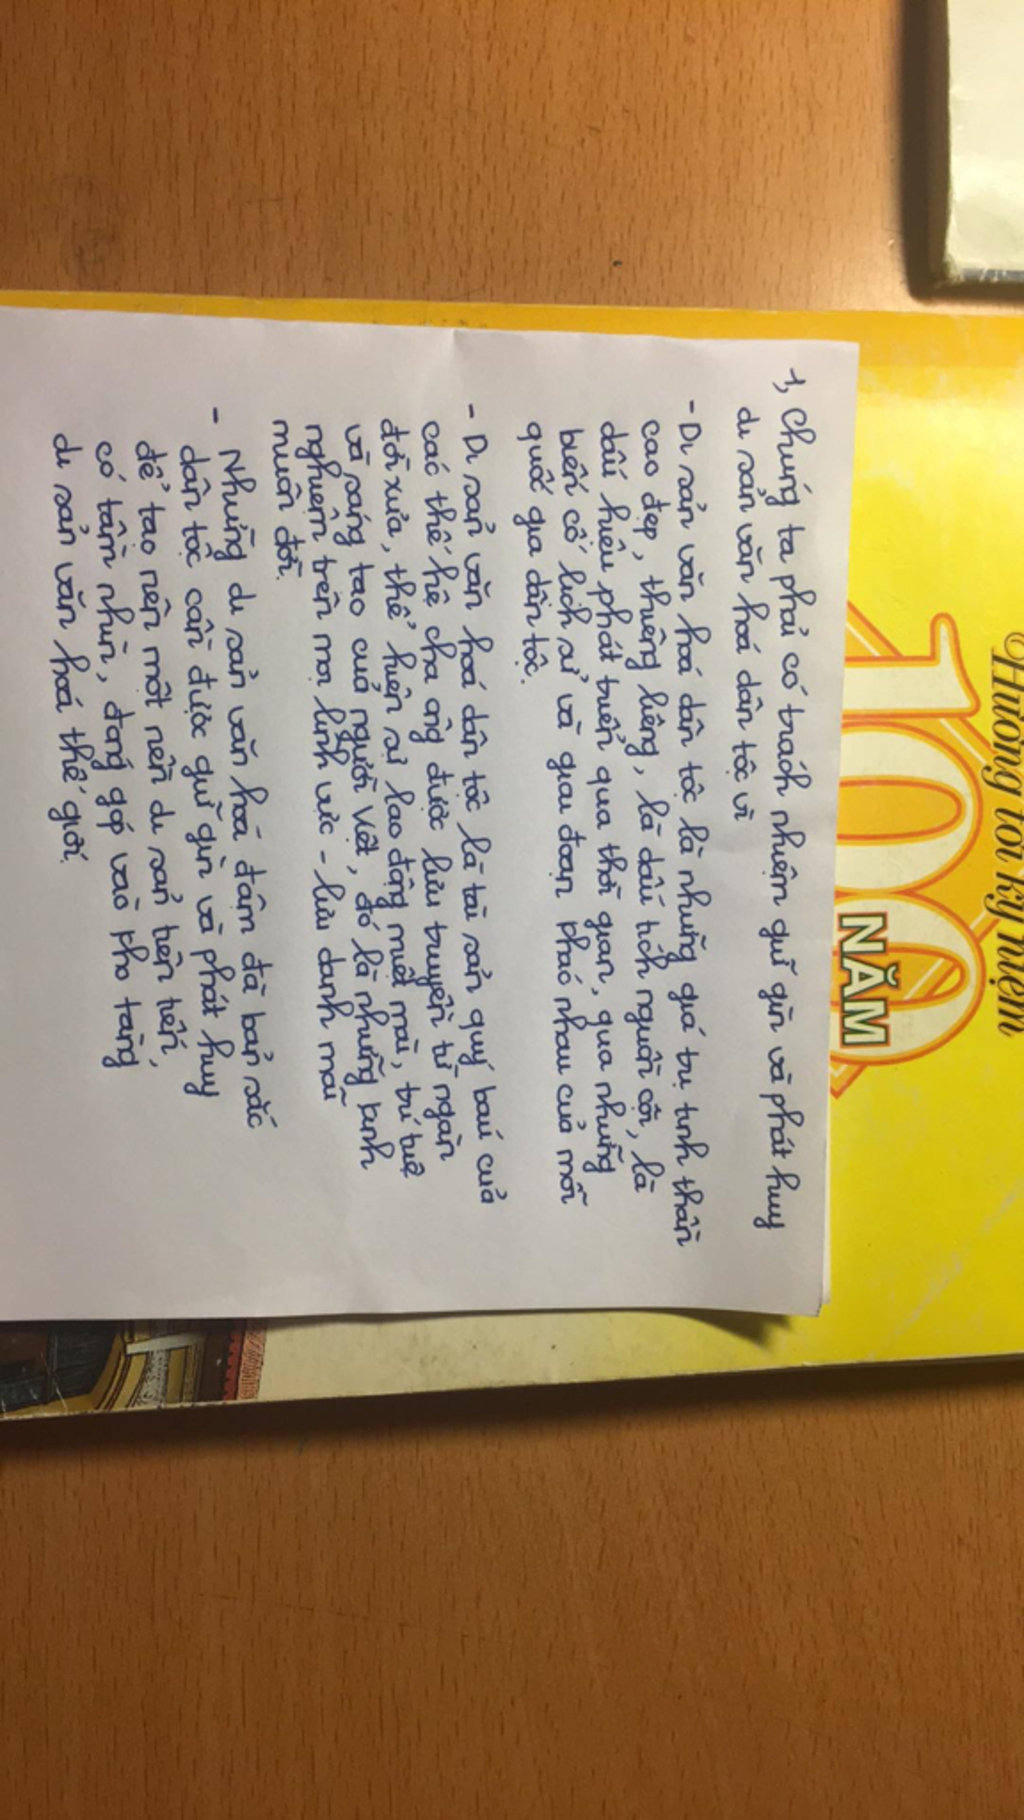 Hướng tới kỷ niệm
100
NĂM
1, Chúng ta phải có trách nhiệm giữ gìn và phát huy
di sản văn hoá dân tộc vì
- Di sản văn hoá dân tộc là những giá trị tinh thần
cao đẹp, thiêng liêng, là dấu tích nguồn cội, là
dấu hiệu phát triển qua thời gian, qua những
biến cố lịch sử và giai đoạn khác nhau của mỗi
quốc gia dân tộc.
- Di sản văn hoá dân tộc là tài sản quý báu của
các thế hệ cha ông được lưu truyền từ ngàn
đời xưa, thể hiện sự lao động miệt mài, trí tuệ
và sáng tạo của người Việt, đó là những kinh
nghiệm trên mọi lĩnh vực - lưu danh mãi
muôn đời.
- Những di sản văn hoá đậm đà bản sắc
dân tộc cần được giữ gìn và phát huy
để tạo nên một nền di sản tiên tiến,
có tầm nhìn, đóng góp vào kho tàng
di sản văn hoá thế giới.